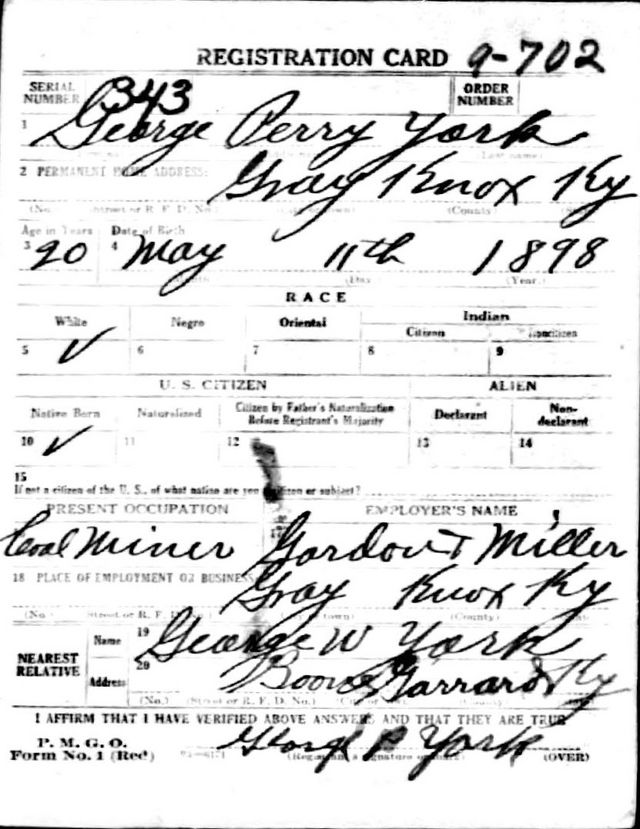 REGISTRATION CARD 9-702
SERIAL NUMBER 343 ORDER NUMBER
1 George Perry York
2 PERMANENT HOME ADDRESS: Gray Knox Ky
(No. Street or R. F. D. No.) (County)
Age in Years Date of Birth
3 20 4 May 11th 1898
(Day) (Year)
RACE
White Negro Oriental Indian
Citizen Noncitizen
5 ✓ 6 7 8 9
U. S. CITIZEN ALIEN
Native Born Naturalized Citizen by Father's Naturalization Before Registrant's Majority Declarant Non-declarant
10 ✓ 11 12 13 14
15
If not a citizen of the U. S., of what nation are you a citizen or subject?
PRESENT OCCUPATION EMPLOYER'S NAME
Coal Miner Gordon & Miller
18 PLACE OF EMPLOYMENT OR BUSINESS: Gray Knox Ky
(No.) (Street or R. F. D. No.) (County)
NEAREST RELATIVE Name 19 George W York
Address 20 Boone Garrard Ky
(No.) (Street or R. F. D. No.)
I AFFIRM THAT I HAVE VERIFIED ABOVE ANSWERS AND THAT THEY ARE TRUE
P. M. G. O.
Form No. 1 (Red) George P York (OVER)
(Registrant's signature or mark)